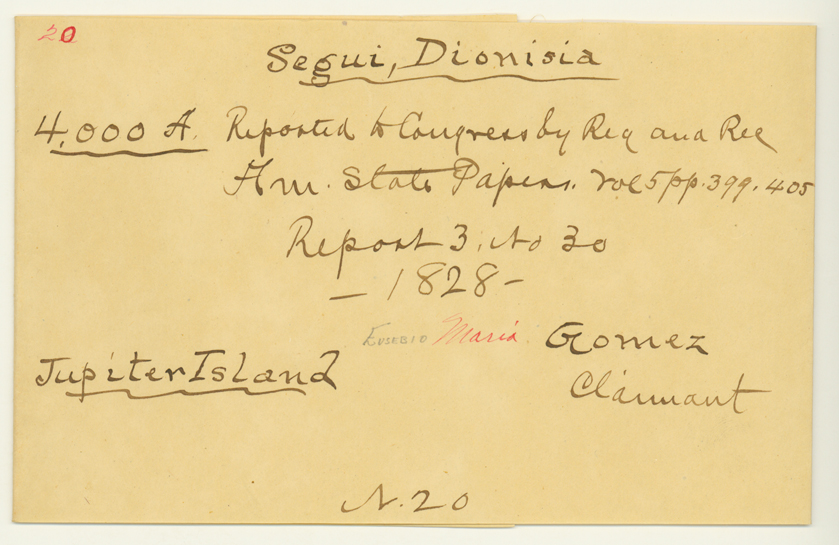 20
Segui, Dionisia
4,000 A. Reported to Congress by Reg and Rec
Am. State Papers. Vol 5 pp. 399. 405
Report 3. No 30
— 1828 —
EUSEBIO Maria Gomez
Jupiter Island
Claimant
N. 20